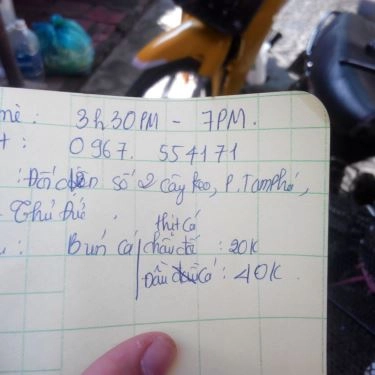 nè: 3h30PM - 7PM.
t: 0967. 554171
: Đối diện số 2 cây keo, P. Tam Phú,
Thủ Đức.
thịt cá
: Bún cá chấu đế : 20K
Đầu cá : 40K